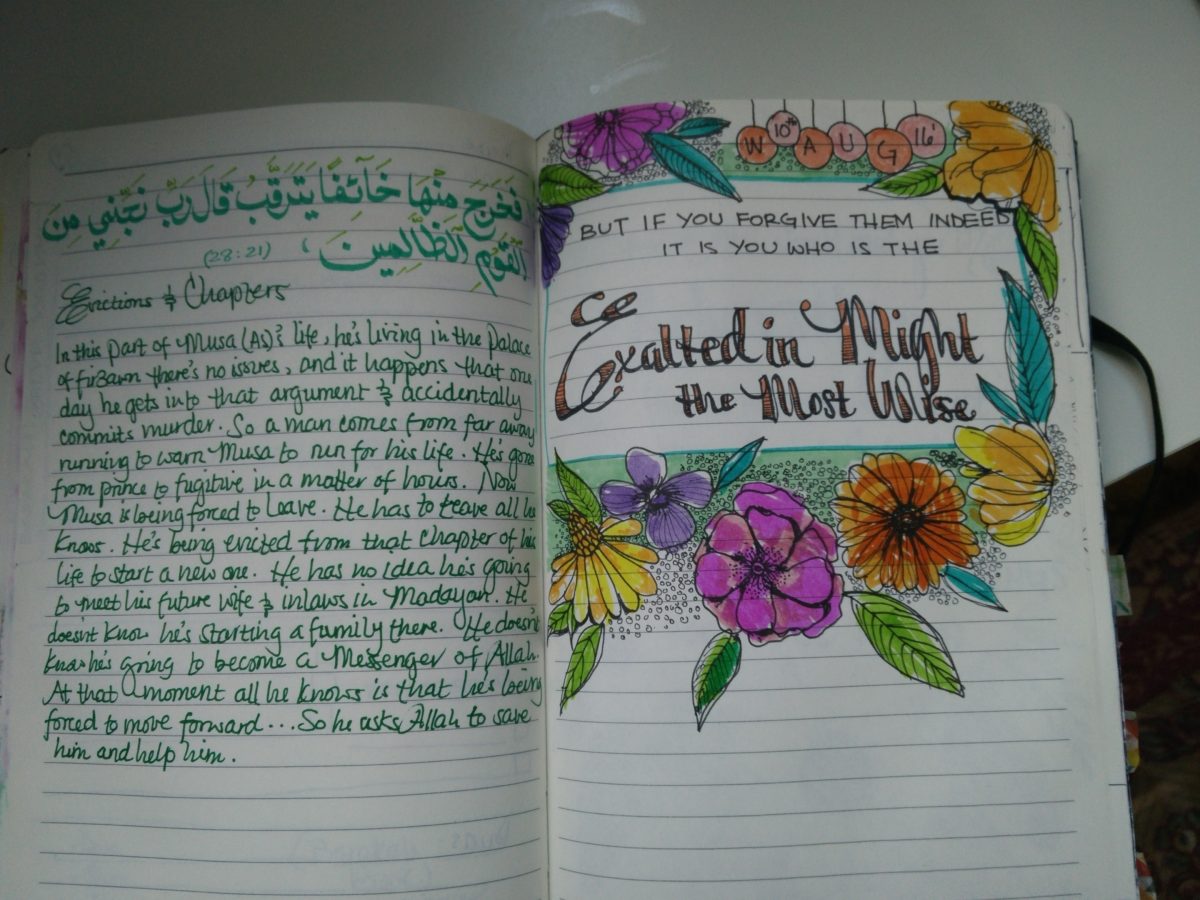 فَخَرَجَ مِنْهَا خَآئِفًا يَتَرَقَّبُ قَالَ رَبِّ نَجِّنِي مِنَ
ٱلْقَوْمِ ٱلظَّالِمِينَ ،
(28:21)
Evictions & Chapters
In this part of Musa (AS)'s life, he's living in the Palace
of fir3awn there's no issues, and it happens that one
day he gets into that argument & accidentally
commits murder. So a man comes from far away
running to warn Musa to run for his life. He's gone
from prince to fugitive in a matter of hours. Now
Musa is being forced to leave. He has to leave all he
knows. He's being evicted from that chapter of his
life to start a new one. He has no idea he's going
to meet his future wife & inlaws in Madayan. He
doesn't know he's starting a family there. He doesn't
know he's going to become a Messenger of Allah.
At that moment all he knows is that he's being
forced to move forward... So he asks Allah to save
him and help him.
W 10th A U G 16'
BUT IF YOU FORGIVE THEM INDEED
IT IS YOU WHO IS THE
Exalted in Might
the Most Wise